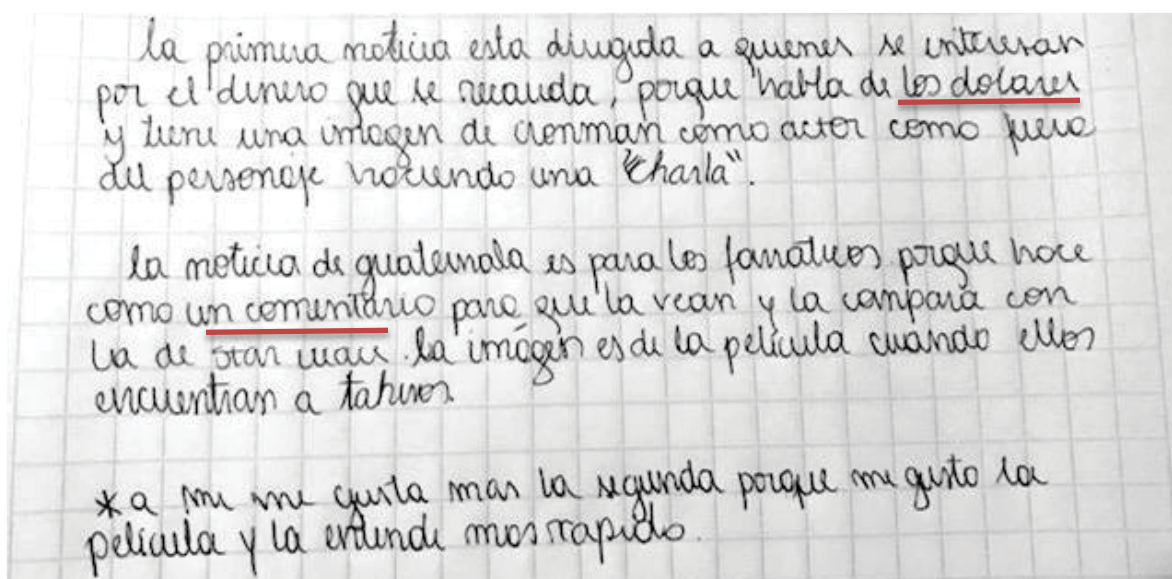 la primera noticia esta dirigida a quienes se interesan
por el dinero que se recauda, porque habla de los dolares
y tiene una imagen de ironman como actor como fuera
del personaje haciendo una "charla".
la noticia de guatemala es para los fanaticos porque hace
como un comentario para que la vean y la compara con
la de star wars. la imágen es de la película cuando ellos
encuentran a
*a mi me gusta mas la segunda porque me gusto la
pelicula y la entendi mas rapido.